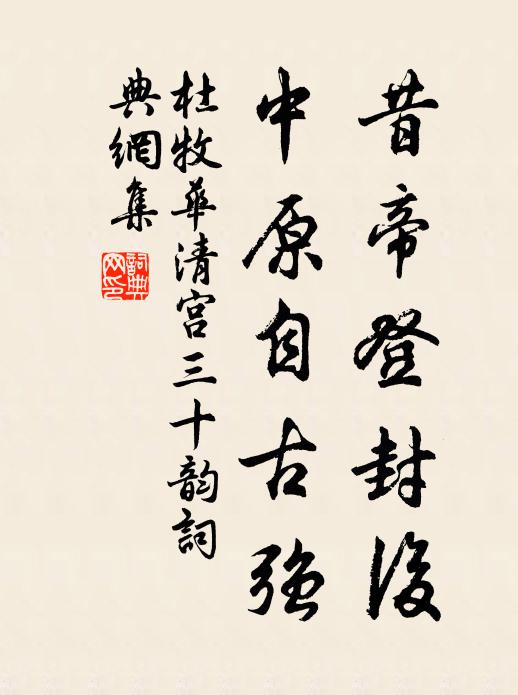 昔帝登封後
中原自古强
杜牧華清宫三十韵詞
典網集
詞典
网印